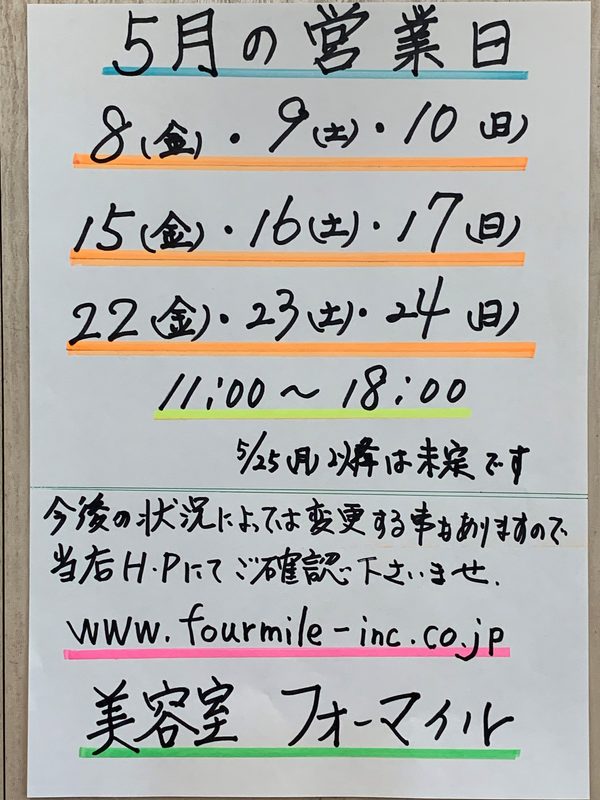 5月の営業日
8(金)・9(土)・10(日)
15(金)・16(土)・17(日)
22(金)・23(土)・24(日)
11:00〜18:00
5/25(月)以降は未定です
今後の状況によっては変更する事もありますので
当店H・Pにてご確認下さいませ.
www.fourmile-inc.co.jp
美容室 フォーマイル